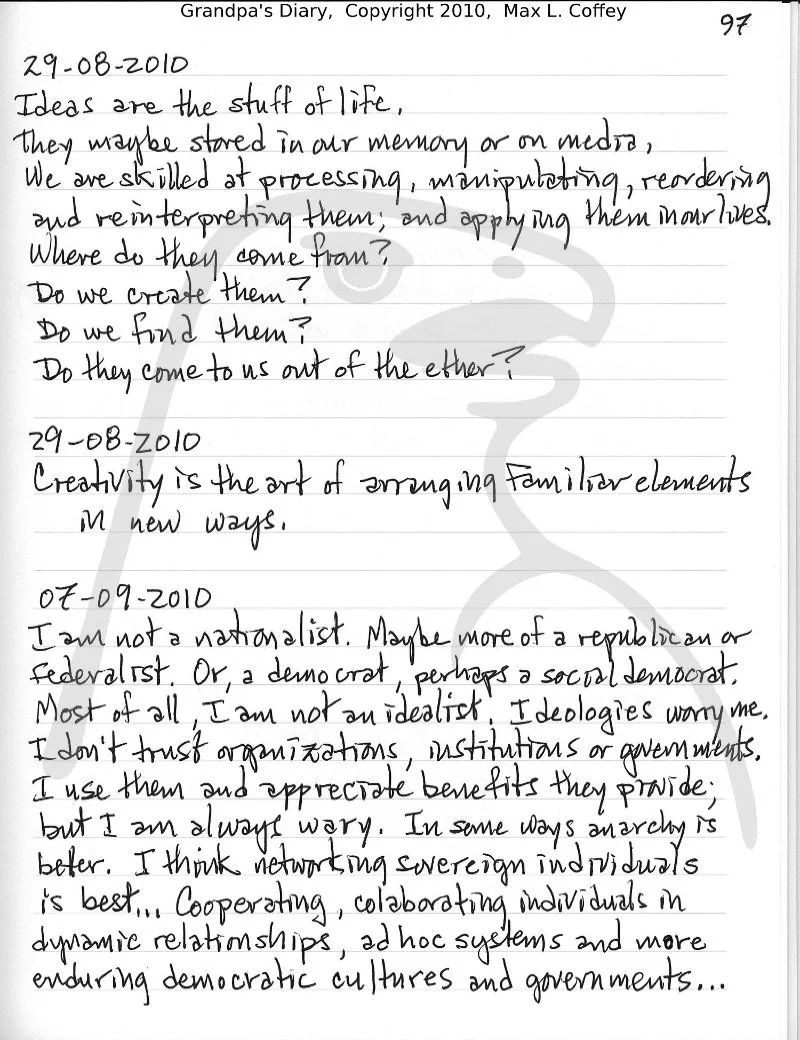 Grandpa's Diary, Copyright 2010, Max L. Coffey
97
29-08-2010
Ideas are the stuff of life,
they maybe stored in our memory or on media,
We are skilled at processing, manipulating, reordering
and reinterpreting them; and applying them in our lives.
Where do they come from?
Do we create them?
Do we find them?
Do they come to us out of the ether?
29-08-2010
Creativity is the art of arranging Familiar elements
in new ways.
07-09-2010
I am not a nationalist. Maybe more of a republican or
federalist. Or, a democrat, perhaps a social democrat.
Most of all, I am not an idealist. Ideologies worry me.
I don't trust organizations, institutions or governments.
I use them and appreciate benefits they provide;
but I am always wary. In some ways anarchy is
beter. I think networking sovereign individuals
is best... Cooperating, colaborating individuals in
dynamic relationships, ad hoc systems and more
enduring democratic cultures and governments...